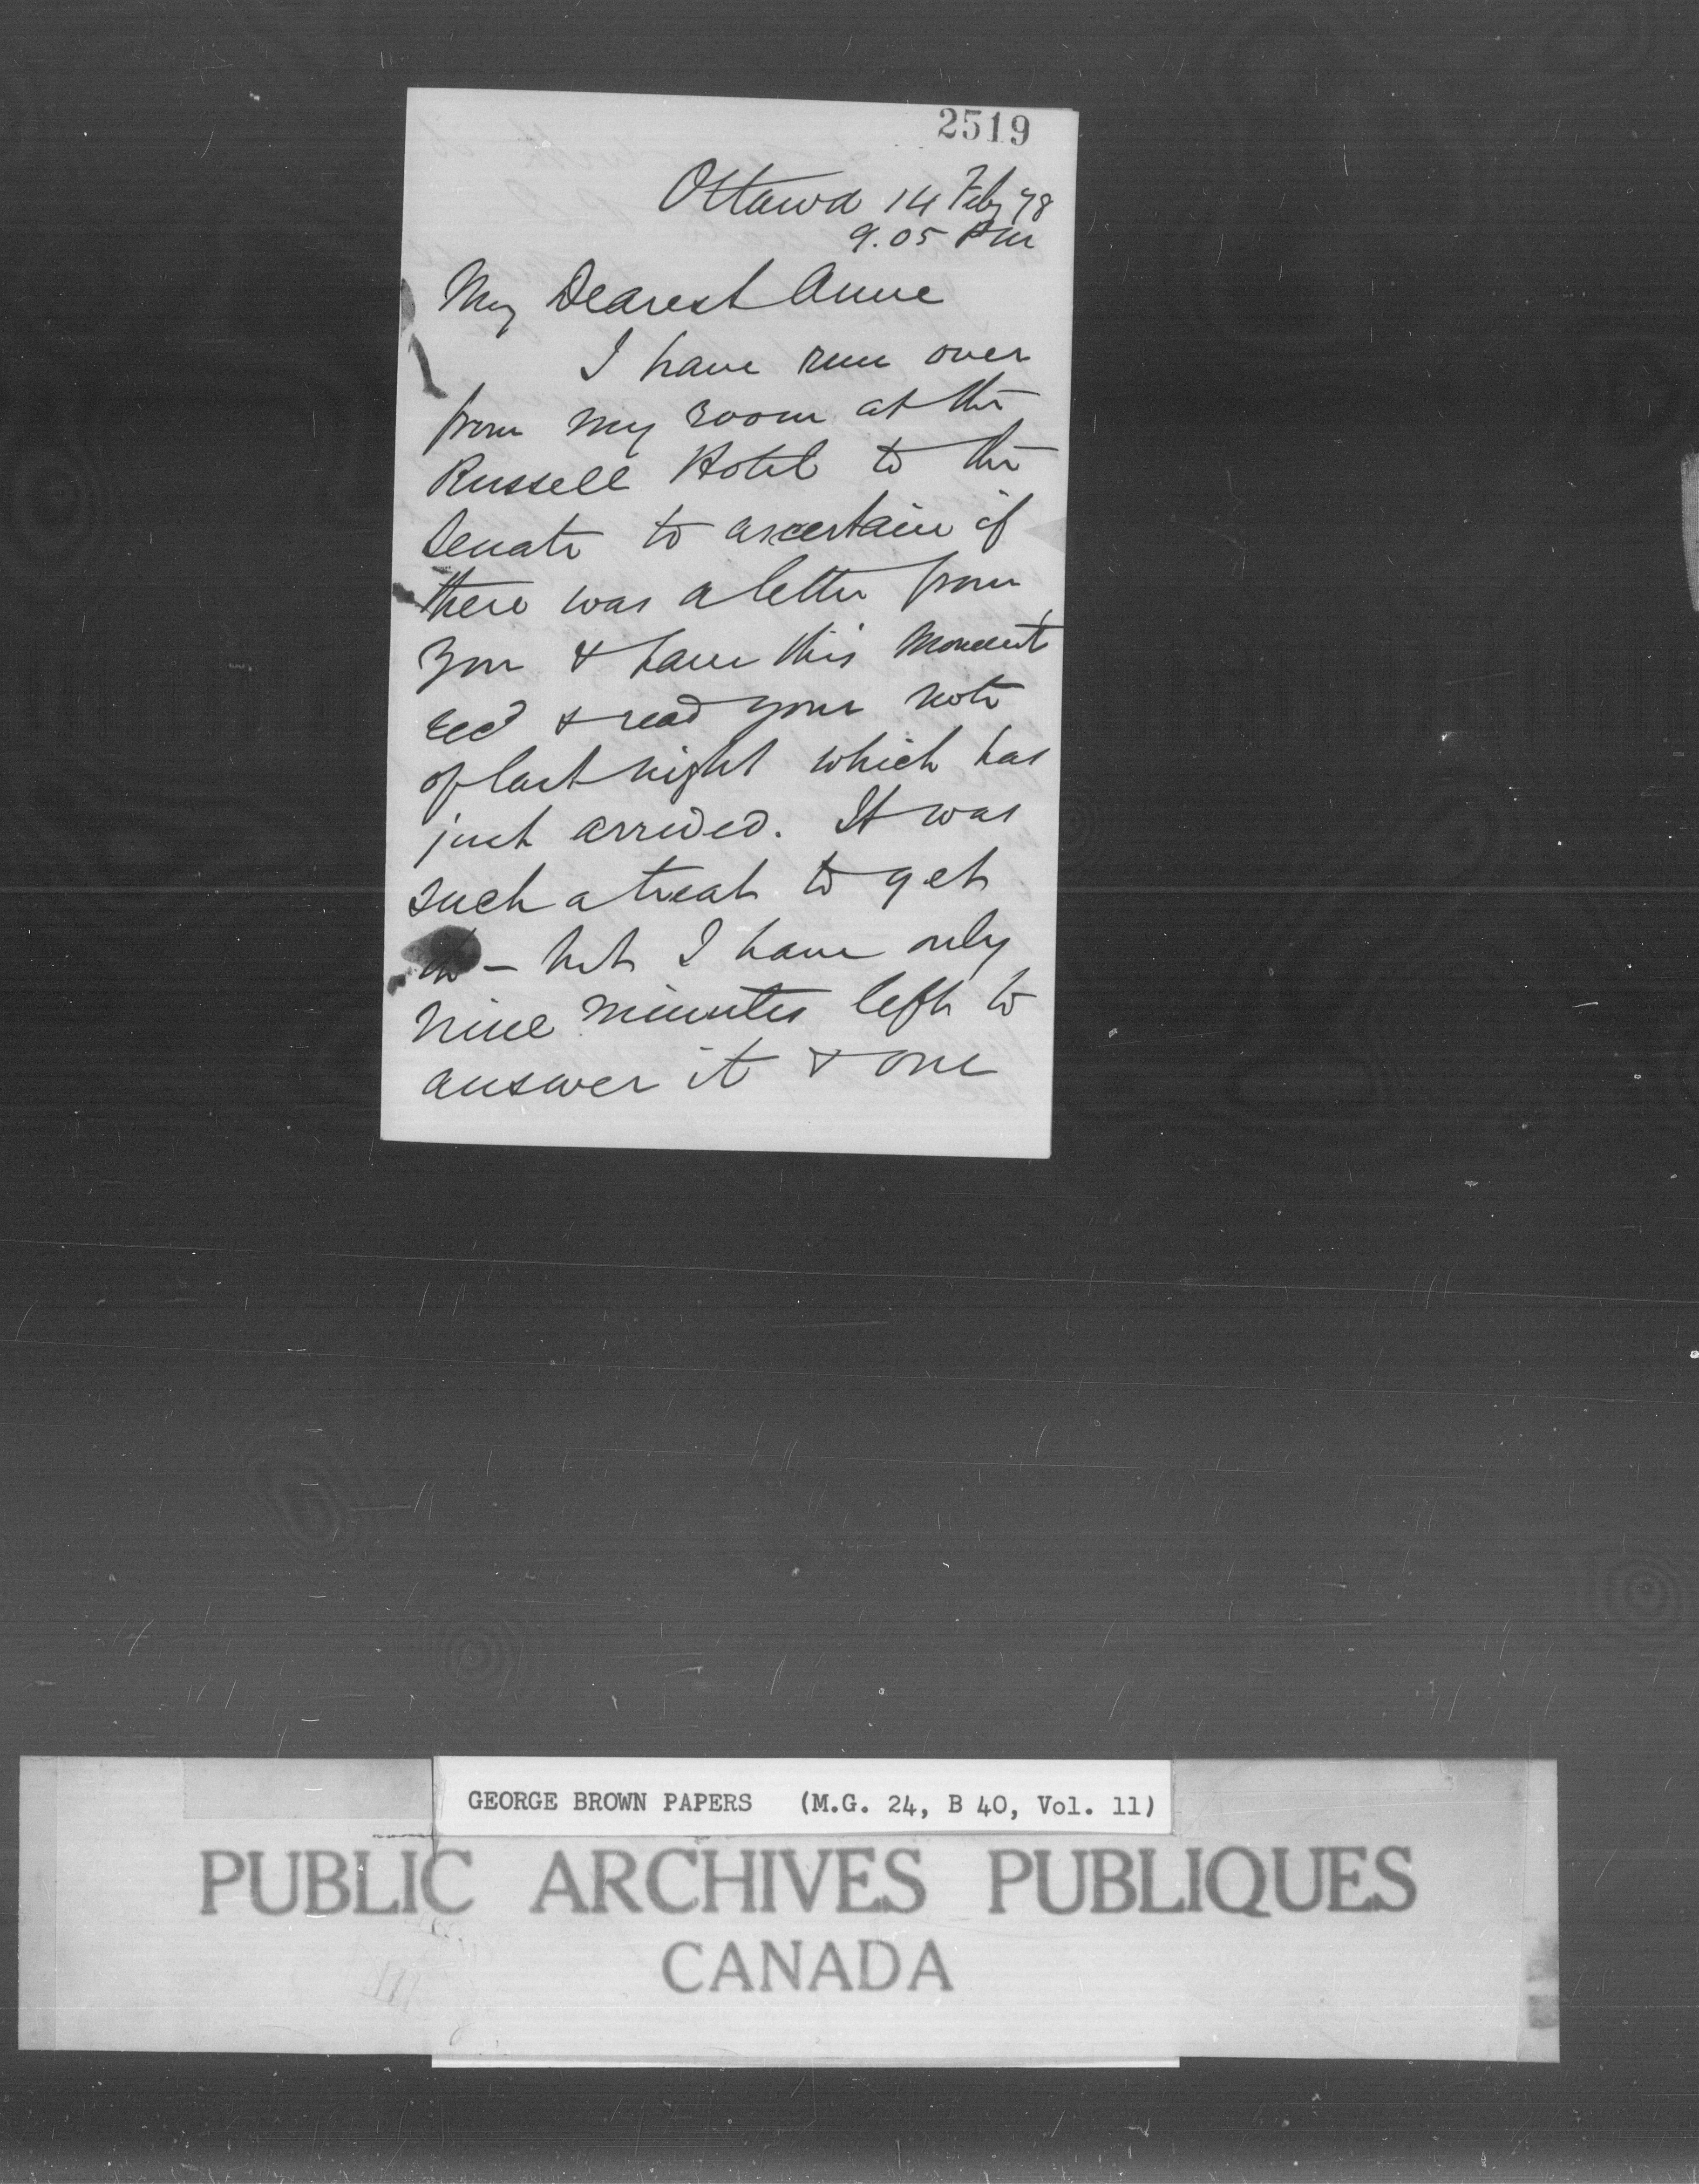 2519
Ottawa 14 Feby 78
9.05 PM
My Dearest Anne
I have run over
from my room at the
Russell Hotel to the
Senate to ascertain if
there was a letter from
you & have this moment
recd & read your note
of last night which has
just arrived. It was
such a treat to get
it - but I have only
nine minutes left to
answer it & one
GEORGE BROWN PAPERS (M.G. 24, B 40, Vol. 11)
PUBLIC ARCHIVES PUBLIQUES
CANADA